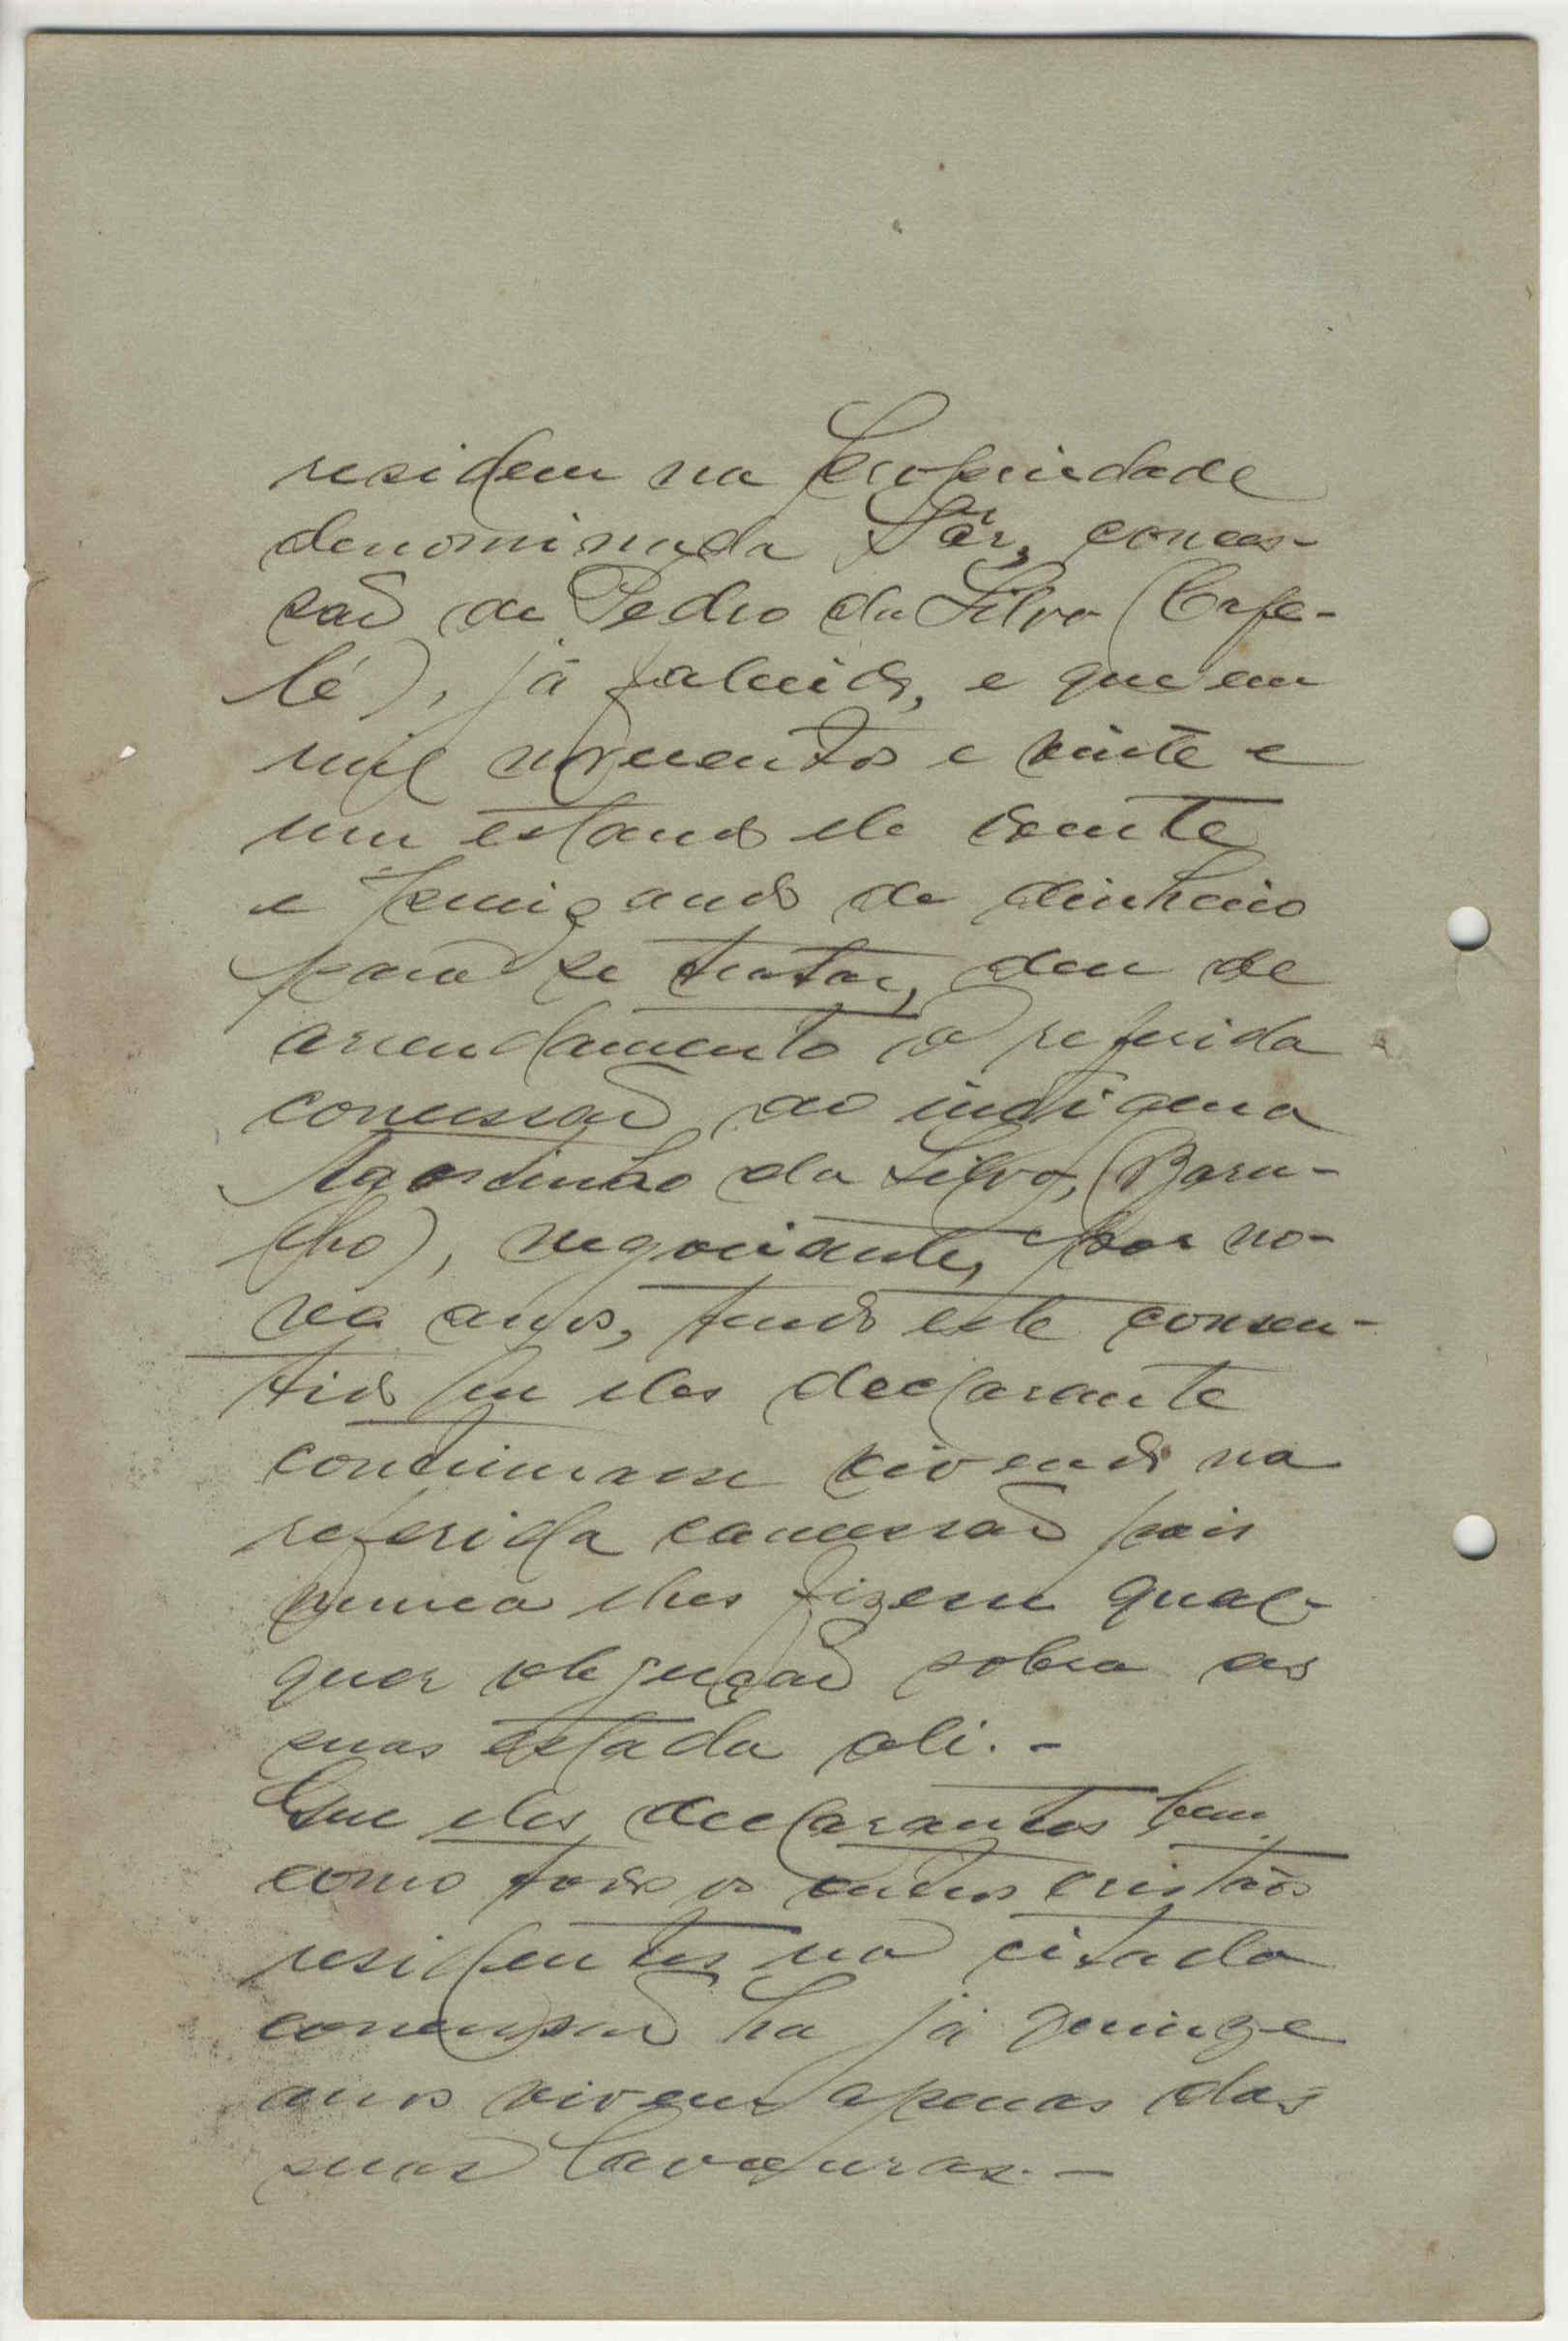 residem na propriedade
denominada Sár, conces-
são de Pedro da Silva (Cafe-
lé), já falecido, e que em
mil novecentos e vinte e
um estando ele doente
e percisando de dinheiro
para se tratar, deu de
arrendamento a referida
concessão ao indigena
Agostinho da Silva, (Baru-
lho), negociante, por no-
ve anos, tendo este consen-
tido que eles declarante
continuassem vivendo na
referida concessão pois
nunca lhes fizeru qual-
quer objeção sobre as
suas estada ali. -
Que eles declarantes bem
como todos os outros cristãos
residentes na citada
concessão ha já quinze
anos vivem apenas das
suas lavouras. -